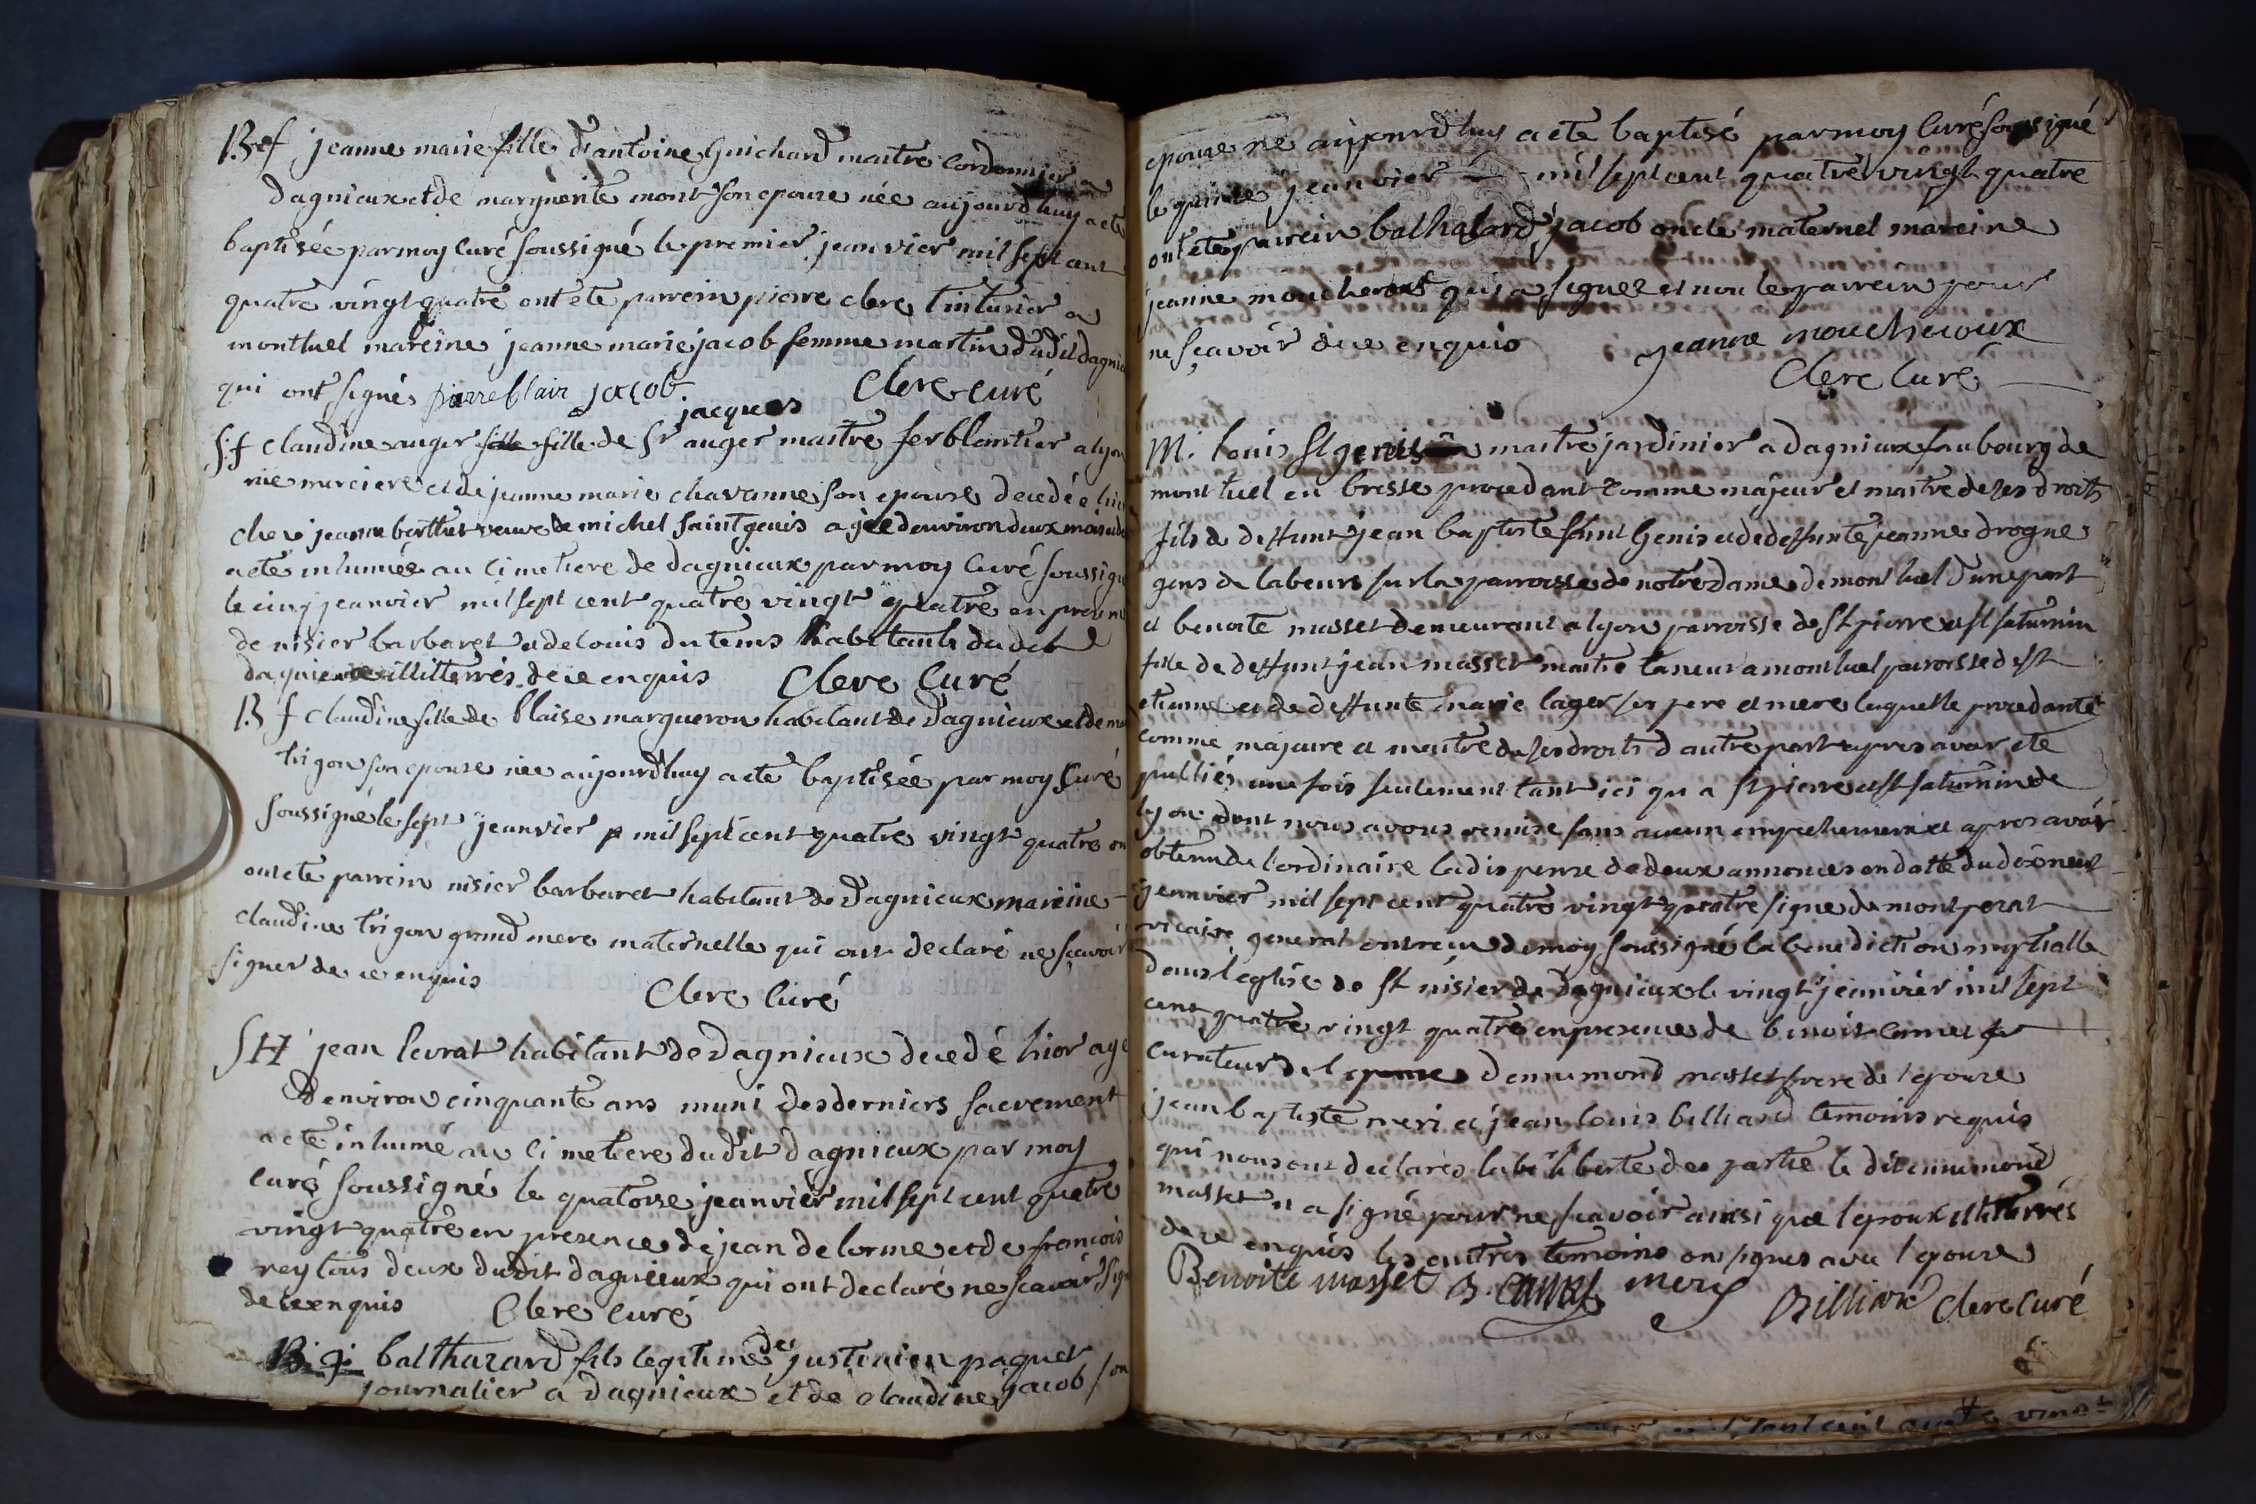 B.f jeanne marie fille d'antoine Guichard maitre cordonnier a
dagnieux et de marguerite mont son epouse née aujourd'huy a eté
baptisée par moy curé soussigné le premier jeanvier mil sept cent
quatre vingt quatre ont été parrein pierre clerc tinturier a
montluel mareine jeanne marie jacob femme martin dudit dagnieux
qui ont signés pierre clair jacob Clerc curé
jacques
S.f claudine auger fille de Sr auger maitre ferblantier a lyon
rüe merciere et de jeanne marie chavanne son epouse decedée hier
chez jeanne berthet veuve de michel saint genis agée d'environ deux mois
a eté inhumée au cimetiere de dagnieux par moy curé soussigné
le cinq jeanvier mil sept cent quatre vingt quatre en presence
de nisier barbaret et de louis dutems habitants dudit
dagnieux illiterrés de ce enquis Clerc Curé
B f claudine fille de blaise margueron habitant de dagnieux et de
trigon son epouse née aujourd'huy a eté baptisée par moy Curé
soussigné le sept jeanvier mil sept cent quatre vingt quatre on
ont eté parrein nisier barbaret habitant de dagnieux mareine
claudine trigon grand mere maternelle qui ont declaré ne scavoir
signer de ce enquis
Clerc Curé
S H jean levrat habitant de dagnieux decedé hier agé
d'environ cinquante ans muni des derniers sacrement
a eté inhumé au cimetiere dudit dagnieux par moy
curé soussigné le quatorse jeanvier mil sept cent quatre
vingt quatre en presence de jean delorme et de francois
rey tous deux dudit dagnieux qui ont declaré ne scavoir
de ce enquis Clerc Curé
B. g. balthazard fils legitime de justinien paquet
journalier a dagnieux et de claudine jacob son
epouse né aujourd'huy a eté baptisé par moy Curé soussigné
le quinze jeanvier mil sept cent quatre vingt quatre
ont eté parrein balthazard jacob oncle maternel mareine
jeanne moucheroux qui a signée et non le parrein pour
ne scavoir de ce enquis Jeanne moucheroux
Clerc Curé
M. louis St genis maitre jardinier a dagnieux faubourg de
montluel en bresse procedant comme majeur et maitre de ses droits
fils de deffunt jean baptiste Saint Genis et de deffunte jeanne drogue
gens de labeurs sur la parroisse de notre dame de montluel d'une part
et benoite masset demeurant a lyon parroisse de St pierre et St saturnin
fille de deffunt jean masset maitre taneur a montluel parroisse de St
etienne et de deffunte marie lager ses pere et mere laquelle procedante
comme majeure et maitre de ses droits d'autre part apres avoir eté
publiés une fois seulement tant ici qu'a St pierre et St saturnin de
lyon dont nous avons remise sans aucun empechement et apres avoir
obtenu de l'ordinaire la dispense de deux annonces en datte du dixneuf
jeanvier mil sept cent quatre vingt quatre signé de montperat
vicaire general ont recu de moy soussigné la benediction nuptialle
dans l'eglise de St nisier de dagnieux le vingt jeanvier mil sept
cent quatre vingt quatre en presence de benoit
curateur de l'epouse d'ennumond masset frere de l'epouse
jean baptiste meri et jean louis billiard temoins requis
qui nous ont declarés la liberté des partie le dit ennumond
masset n'a signé pour ne scavoir ainsi que l'epoux illiterrés
de ce enquis les autres temoins ont signés avec l'epouse
Benoite masset B. mery Billiard Clerc Curé
sept cent quatre vingt